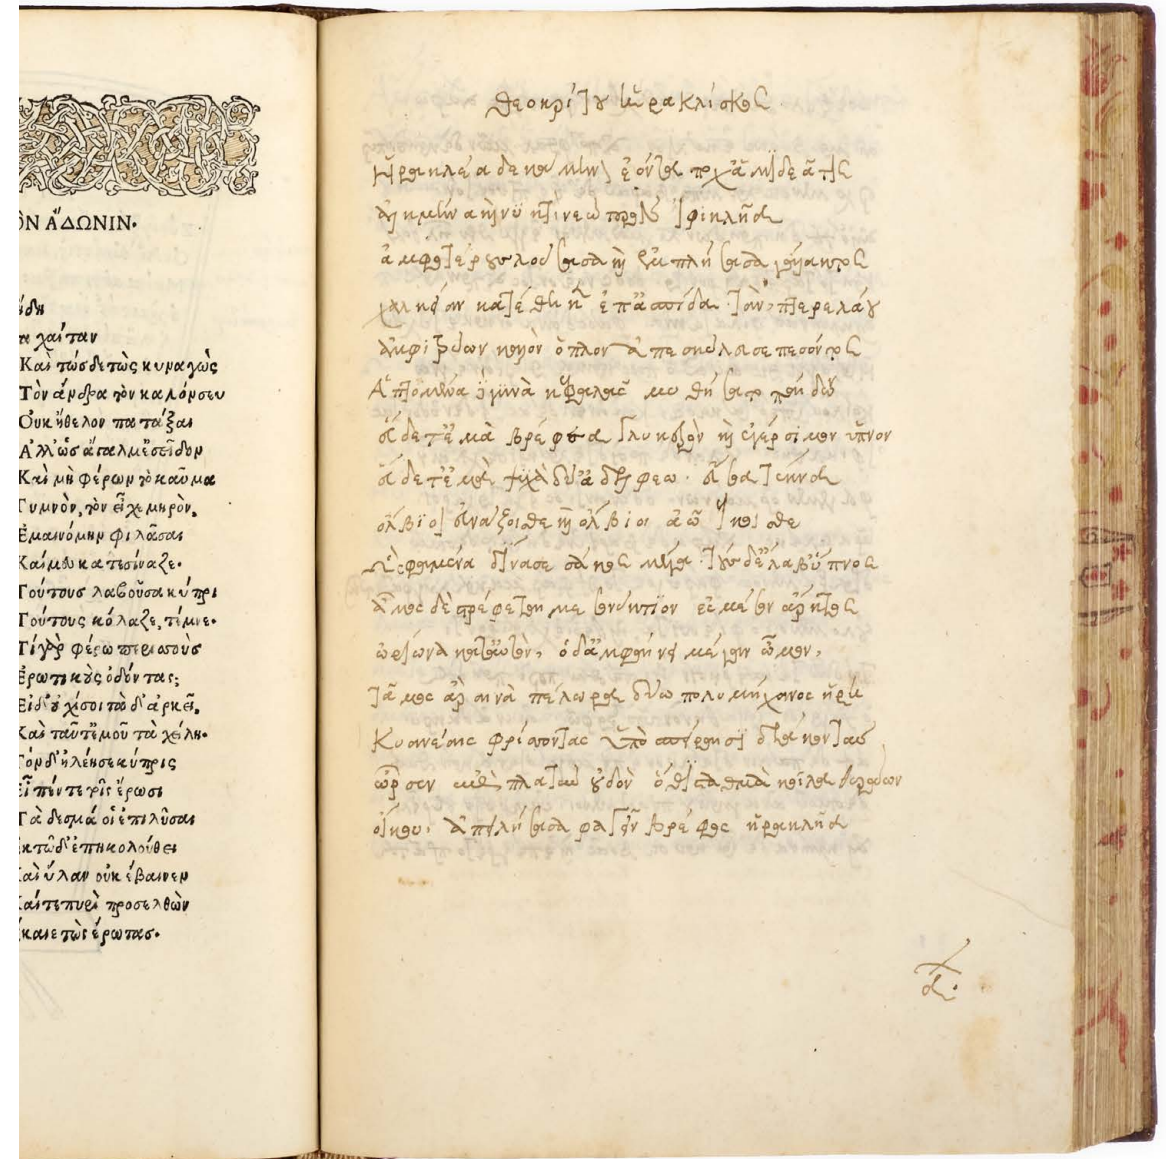 ὸν Ἄδωνιν.
ήδη
χαίταν
Καὶ τώσδε τὼς κυναγὼς
Τὸν ἄνδρα τὸν καλόν σευ
Οὐκ ἤθελον πατάξαι
Ἀλλ' ὡς ἄγαλμ' ἐσεῖδον
Καὶ μὴ φέρων τὸ καῦμα
Γυμνὸν, τὸν εἶχε μηρὸν,
Ἐμαινόμην φιλᾶσαι
Καί μευ κατεσίναζε.
Τούτους λαβοῦσα κύπρι
Τούτους κόλαζε, τέμνε.
Τί γὰρ φέρω περισσοὺς
Ἐρωτικοὺς ὀδόντας;
Εἰ δ' οὐχί σοι τὸ δ' ἀρκεῖ,
Καὶ ταῦτ' ἐμοῦ τὰ χείλη.
Τὸν δ' ἠλέησε κύπρις
Εἶπέν τε τοῖς ἔρωσι
Τὰ δεσμά οἱ ἐπιλῦσαι
ἐκ τῶδ' ἐπηκολούθει
Καὶ ὕλαν οὐκ ἔβαινεν
Καί τε πυρὶ προσελθὼν
ἔκαιε τὼς ἔρωτας.
Θεοκρίτου ἡρακλίσκος
Ἡρακλέα δεκάμηνον ἐόντα ποχ' ἁ μιδεᾶτις
Ἀλκμήνα καὶ νυκτὶ νεώτερον Ἰφικλῆα
ἀμφοτέρους λούσασα καὶ ἐμπλήσασα γάλακτος
χαλκείαν κατέθηκεν ἐπ' ἀσπίδα τὰν πτερελάου
Ἀμφιτρύων καλὸν ὅπλον ἀπεσκύλευσε πεσόντος
Ἁπτομένα δὲ γυνὰ κεφαλᾶς μυθήσατο παίδων
εὕδετ' ἐμὰ βρέφεα γλυκερὸν καὶ ἐγέρσιμον ὕπνον
εὕδετ' ἐμὰ ψυχὰ δύ' ἀδελφεὼ εὔσοα τέκνα
ὄλβιοι εὐνάζοισθε καὶ ὄλβιοι ἀῶ ἵκοισθε
Ὣς φαμένα δίνασε σάκος μέγα. τοὺς δ' ἔλαβ' ὕπνος
Ἆμος δὲ στρέφεται μεσονύκτιον ἐς δύσιν ἄρκτος
ὠρίωνα κατ' αὐτὸν, ὁ δ' ἀμφαίνει μέγαν ὦμον,
Τᾶμος ἄρ' αἰνὰ πέλωρα δύω πολυμήχανος ἥρα
Κυανέαις φρίσσοντας ὑπὸ σπείραισι δράκοντας
ὦρσεν ἐπὶ πλατὺν οὐδὸν ὅθι σταθμὰ κοῖλα θυράων
οἴκου. ἀπειλήσασα φαγεῖν βρέφος ἡρακλῆα